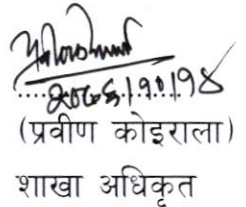 २०७६।१०।१४
(प्रवीण कोइराला)
शाखा अधिकृत